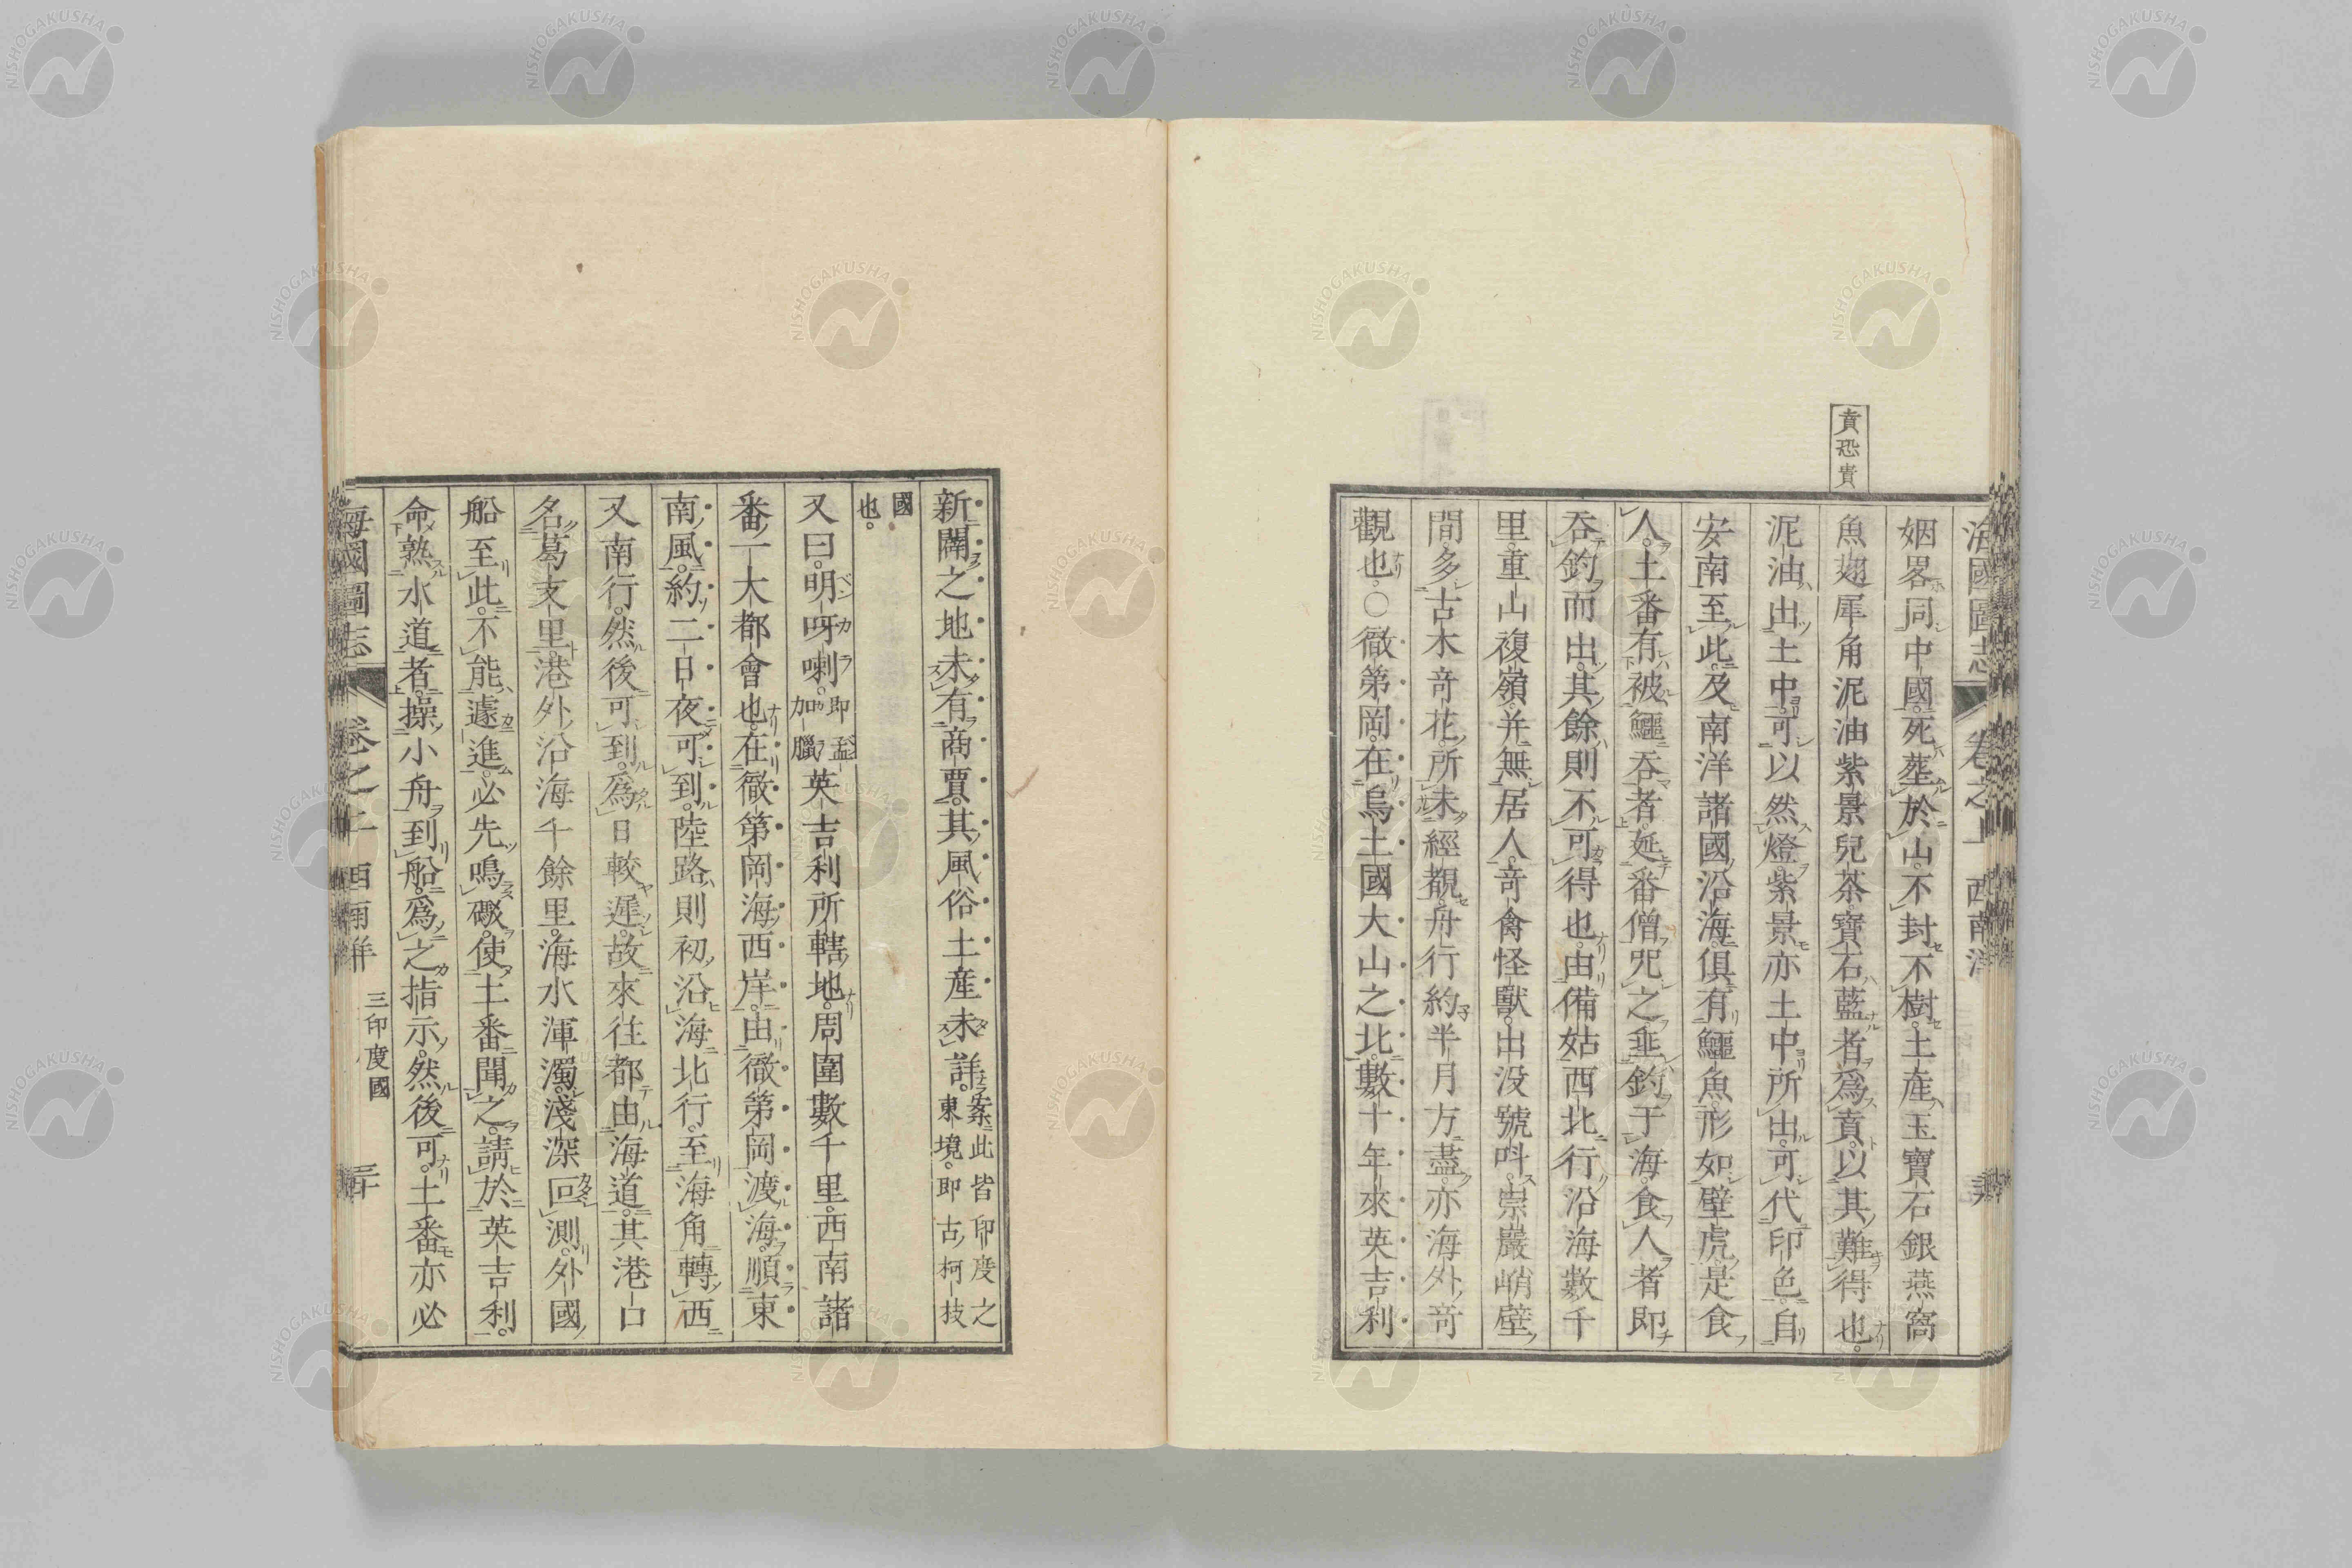 賁恐貴
海國圖志 卷之十 西南洋
姻畧同中國死葬於山不封不樹土產玉寶石銀燕窩
魚翅犀角泥油紫景兒茶寶石藍者爲賁以其難得也
泥油出土中可以然燈紫景亦土中所出可代印色自
安南至此及南洋諸國沿海俱有鱷魚形如壁虎是食
人土番有被鱷吞者延番僧咒之垂鈎于海食人者即
吞鈎而出其餘則不可得也由備姑西北行沿海數千
里重山複嶺并無居人奇禽怪獸出没號呌崇巖峭壁
間多古木奇花所未經覩舟行約半月方盡亦海外奇
觀也○徹第岡在烏土國大山之北數十年來英吉利
新闢之地未有商賈其風俗土產未詳案此皆印度之東境即古柯技
國也
又曰明呀喇即孟加臘英吉利所轄地周圍數千里西南諸
番一大都會也在徹第岡海西岸由徹第岡渡海順東
南風約二日夜可到陸路則初沿海北行至海角轉西
又南行然後可到爲日較遲故來往都由海道其港口
名葛支里港外沿海千餘里海水渾濁淺深叵測外國
船至此不能遽進必先鳴礮使土番聞之請於英吉利
命熟水道者操小舟到船爲之指示然後可土番亦必
海國圖志 卷之十 西南洋 三印度國